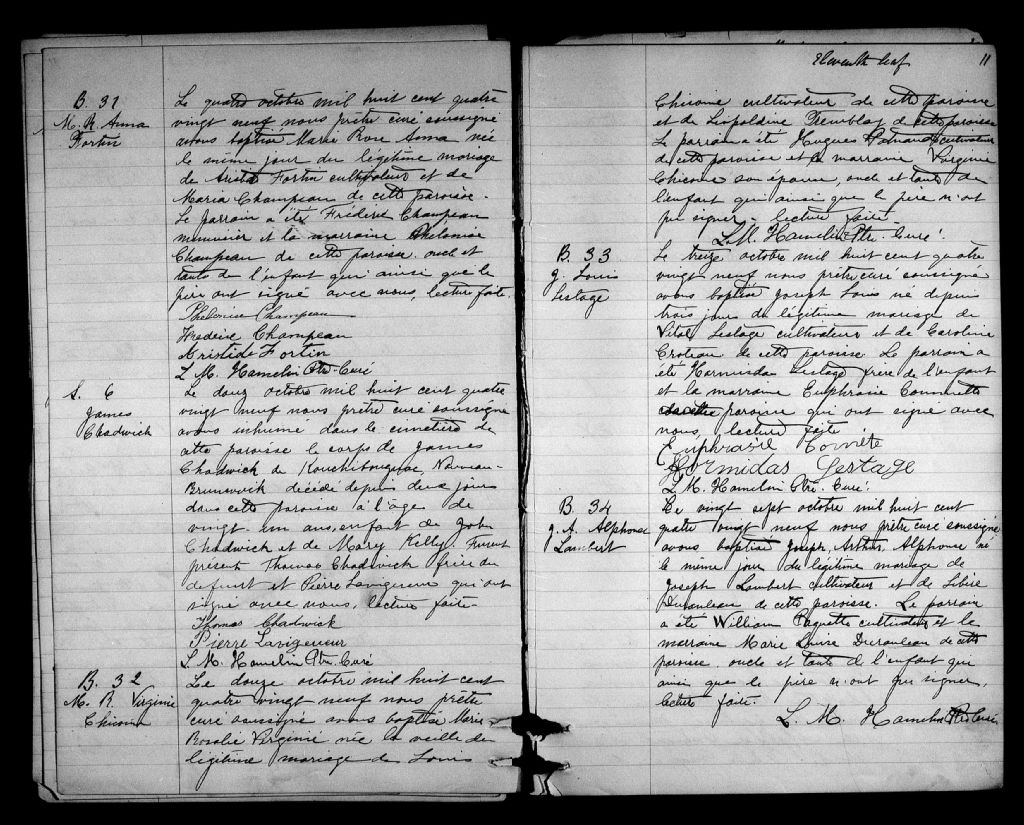 B. 31
M. R. Anna
Fortin
Le quatre octobre mil huit cent quatre
vingt neuf nous prêtre curé soussigné
avons baptisé Marie Rose Anna née
le même jour du légitime mariage
de Aristide Fortin cultivateur et de
Maria Champeau de cette paroisse.
Le parrain a été Fréderic Champeau
menuisier et la marraine Phelonise
Champeau de cette paroisse. oncle et
tante de l'enfant qui ainsi que le
père ont signé avec nous, lecture faite.
Phelonise Champeau
Frederic Champeau
Aristide Fortin
L. M. Hamelin Ptre. Curé
S. 6
James
Chadwick
Le douze octobre mil huit cent quatre
vingt neuf nous prêtre curé soussigné
avons inhumé dans le cimetière de
cette paroisse le corps de James
Chadwick de Kouchibouguac, Nouveau-
Brunswick décédé depuis deux jours
dans cette paroisse à l'âge de
vingt-un ans, enfant de John
Chadwick et de Mary Kelly. Furent
présent Thomas Chadwick frère du
defunt et Pierre Lavigueur qui ont
signé avec nous, lecture faite-
Thomas Chadwick
Pierre Lavigeneur
L. M. Hamelin Ptre. Curé
B. 32
M. R. Virginie
Chicoine
Le douze octobre mil huit cent
quatre vingt neuf nous prêtre
curé soussigné avons baptisé Marie
Rosalie Virginie née la veille du
légitime mariage de Louis
Eleventh leaf 11
Chicoine cultivateur de cette paroisse
et de Leopoldine Tremblay de cette paroisse
Le parrain a été Hugues cultivateur
de cette paroisse et la marraine Virginie
Chicoine son épouse, oncle et tante de
l'enfant qui ainsi que le père n'ont
pu signer. lecture faite.
L. M. Hamelin Ptre. Curé.
B. 33
J. Louis
Lestage
Le treize octobre mil huit cent quatre
vingt neuf nous prêtre curé soussigné
avons baptisé Joseph Louis né depuis
trois jours du légitime mariage de
Vital Lestage cultivateur et de Caroline
Croteau de cette paroisse. Le parrain a
été Hormisdas Lestage frère de l'enfant
et la marraine Euphrasie
de cette paroisse qui ont signé avec
nous, lecture faite
Euphrasie
Hormidas Lestage
L. M. Hamelin Ptre. Curé.
B. 34
J. A. Alphonse
Lambert
Le vingt sept octobre mil huit cent
quatre vingt neuf nous prêtre curé soussigné
avons baptisé Joseph, Arthur, Alphonse né
le même jour du légitime mariage de
Joseph Lambert cultivateur et de
Duranleau de cette paroisse. Le parrain
a été William Paquette cultivateur et la
marraine Marie Louise Duranleau de cette
paroisse. oncle et tante de l'enfant qui
ainsi que le père n'ont pu signer,
lecture faite.
L. M. Hamelin Ptre Curé